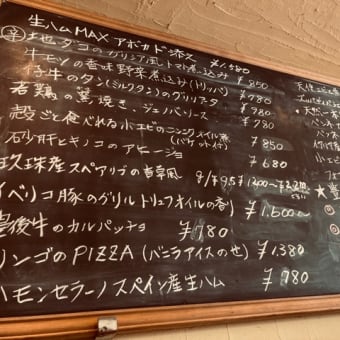 生ハムMAX アボカド添え ¥1,580
辛 地ダコのガリシア風トマト煮込み ¥850
牛モツの香味野菜煮込み(トリッパ) ¥780
仔牛のタン(ミルクタン)のグリエ ¥980
若鶏の窯焼き・ジェノバソース ¥780
殻ごと食べれる エビのニンニクオイル煮
(バケット付) ¥850
砂肝とキノコのアヒージョ ¥680
玖珠産スペアリブの香草風
イベリコ豚のグリルトリュフオイルの香り ¥1,600〜
豊後牛のカルパッチョ ¥780
リンゴのPIZZA(バニラアイスのせ) ¥1,380
ハモンセラーノスペイン産生ハム ¥780